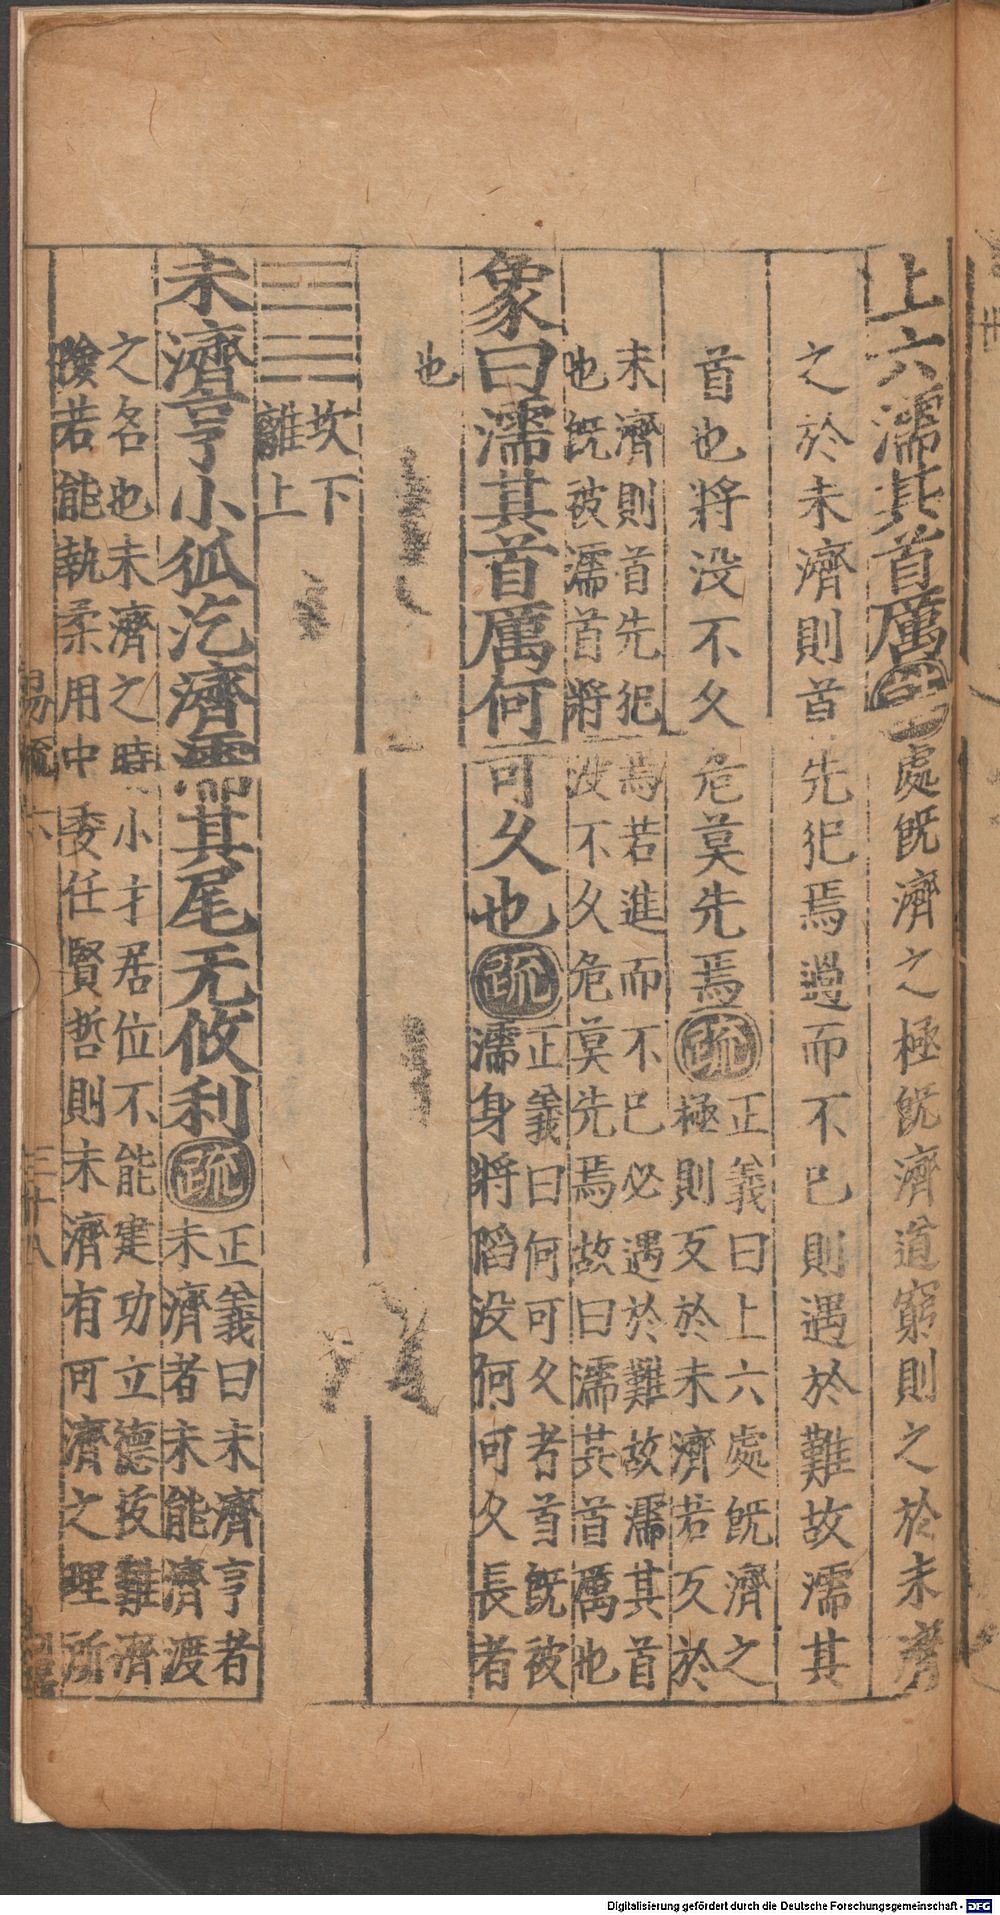 上六濡其首厲注處旣濟之極旣濟道窮則之於未濟
之於未濟則首先犯焉過而不已則遇於難故濡其
首也將沒不久危莫先焉疏正義曰上六處旣濟之
極則反於未濟若反於
未濟則首先犯焉若進而不已必遇於難故濡其首
也旣被濡首將沒不久危莫先焉故曰濡其首厲也
象曰濡其首厲何可久也疏正義曰何可久者首旣被
濡身將陷沒何可久長者
也
坎下
離上
未濟亨小狐汔濟濡其尾无攸利疏正義曰未濟亨者
未濟者未能濟渡
之名也未濟之時小才居位不能建功立德拔難濟
險若能執柔用中委任賢哲則未濟有可濟之理所
易疏六
三十八
Digitalisierung gefördert durch die Deutsche Forschungsgemeinschaft - DFG